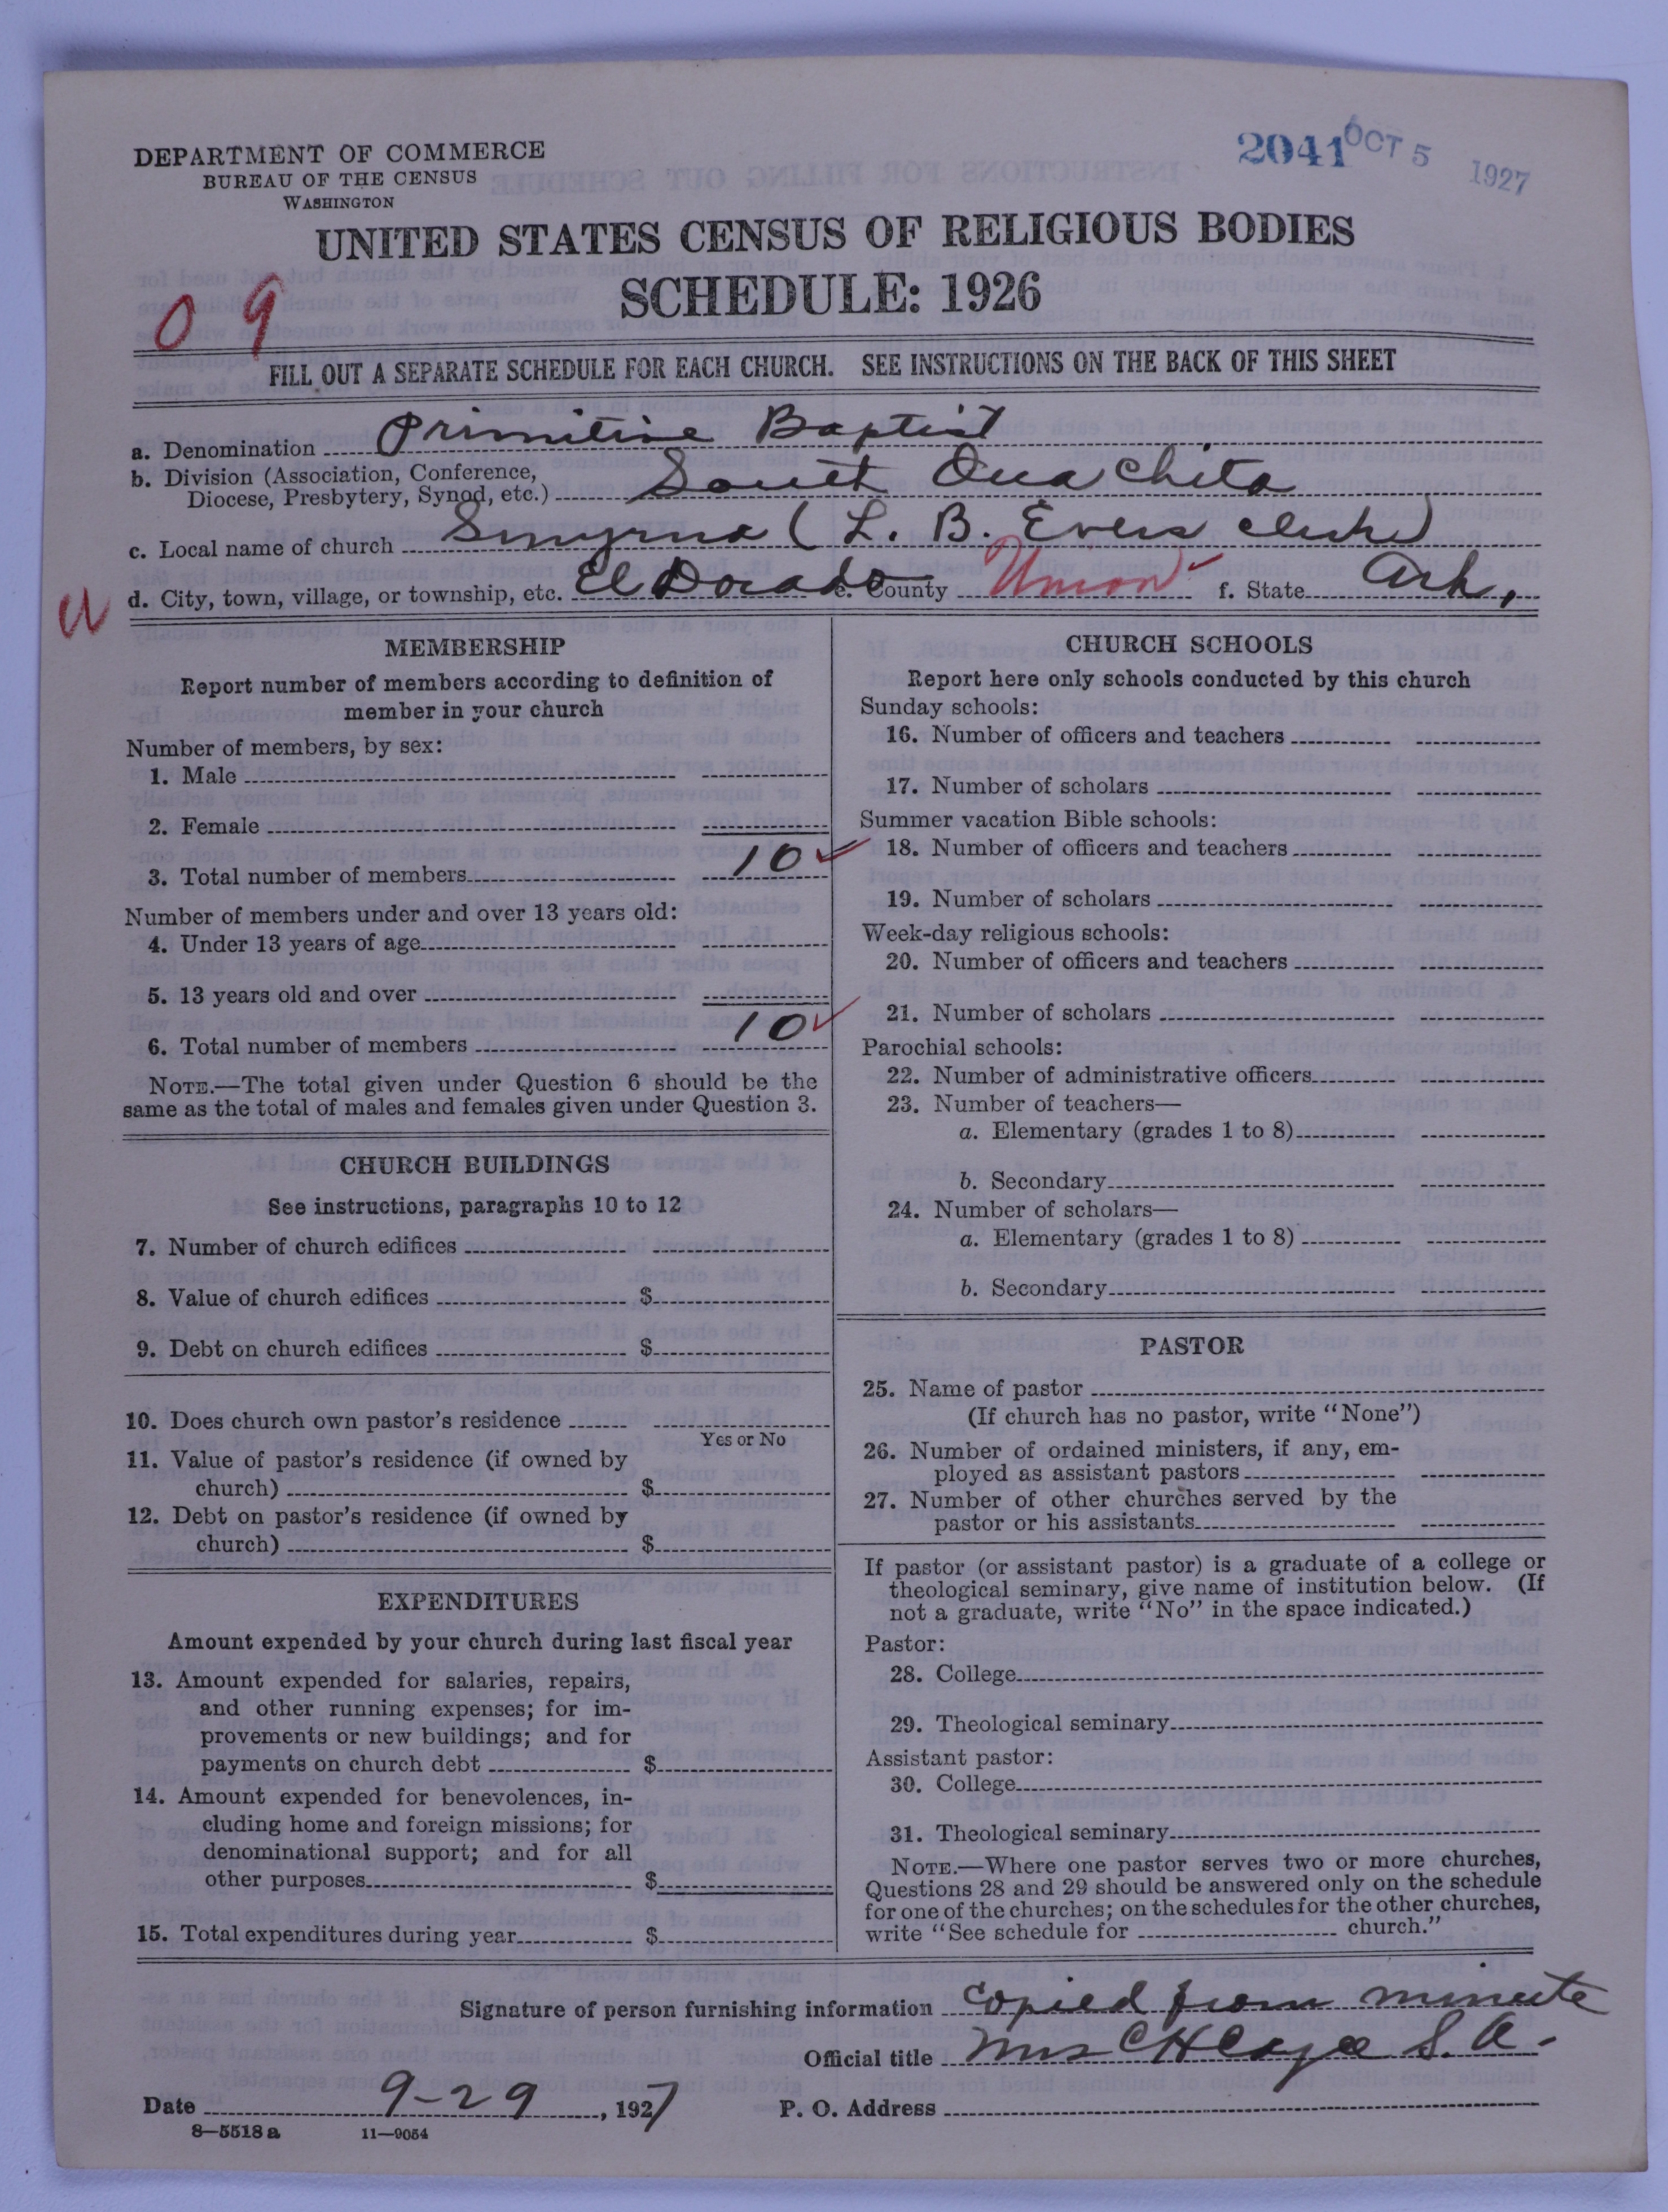 DEPARTMENT OF COMMERCE
BUREAU OF THE CENSUS
WASHINGTON
2041 OCT 5 1927
UNITED STATES CENSUS OF RELIGIOUS BODIES
SCHEDULE: 1926
09
FILL OUT A SEPARATE SCHEDULE FOR EACH CHURCH. SEE INSTRUCTIONS ON THE BACK OF THIS SHEET
a. Denomination Primitive Baptist
b. Division (Association, Conference,
Diocese, Presbytery, Synod, etc.) South Ouachita
c. Local name of church Smyrna (L. B. Evers clerk)
d. City, town, village, or township, etc. El Dorado e. County Union f. State Ark.
MEMBERSHIP
Report number of members according to definition of
member in your church
Number of members, by sex:
1. Male
2. Female
3. Total number of members 10
Number of members under and over 13 years old:
4. Under 13 years of age
5. 13 years old and over
6. Total number of members 10
NOTE.—The total given under Question 6 should be the
same as the total of males and females given under Question 3.
CHURCH BUILDINGS
See instructions, paragraphs 10 to 12
7. Number of church edifices
8. Value of church edifices $
9. Debt on church edifices $
10. Does church own pastor's residence
Yes or No
11. Value of pastor's residence (if owned by
church) $
12. Debt on pastor's residence (if owned by
church) $
EXPENDITURES
Amount expended by your church during last fiscal year
13. Amount expended for salaries, repairs,
and other running expenses; for im-
provements or new buildings; and for
payments on church debt $
14. Amount expended for benevolences, in-
cluding home and foreign missions; for
denominational support; and for all
other purposes $
15. Total expenditures during year $
CHURCH SCHOOLS
Report here only schools conducted by this church
Sunday schools:
16. Number of officers and teachers
17. Number of scholars
Summer vacation Bible schools:
18. Number of officers and teachers
19. Number of scholars
Week-day religious schools:
20. Number of officers and teachers
21. Number of scholars
Parochial schools:
22. Number of administrative officers
23. Number of teachers—
a. Elementary (grades 1 to 8)
b. Secondary
24. Number of scholars—
a. Elementary (grades 1 to 8)
b. Secondary
PASTOR
25. Name of pastor
(If church has no pastor, write "None")
26. Number of ordained ministers, if any, em-
ployed as assistant pastors
27. Number of other churches served by the
pastor or his assistants
If pastor (or assistant pastor) is a graduate of a college or
theological seminary, give name of institution below. (If
not a graduate, write "No" in the space indicated.)
Pastor:
28. College
29. Theological seminary
Assistant pastor:
30. College
31. Theological seminary
NOTE.—Where one pastor serves two or more churches,
Questions 28 and 29 should be answered only on the schedule
for one of the churches; on the schedules for the other churches,
write "See schedule for church."
Signature of person furnishing information Copied from minute
Official title Mrs C H S. A.
Date 9-29, 1927 P. O. Address
8—5518 a 11—9054